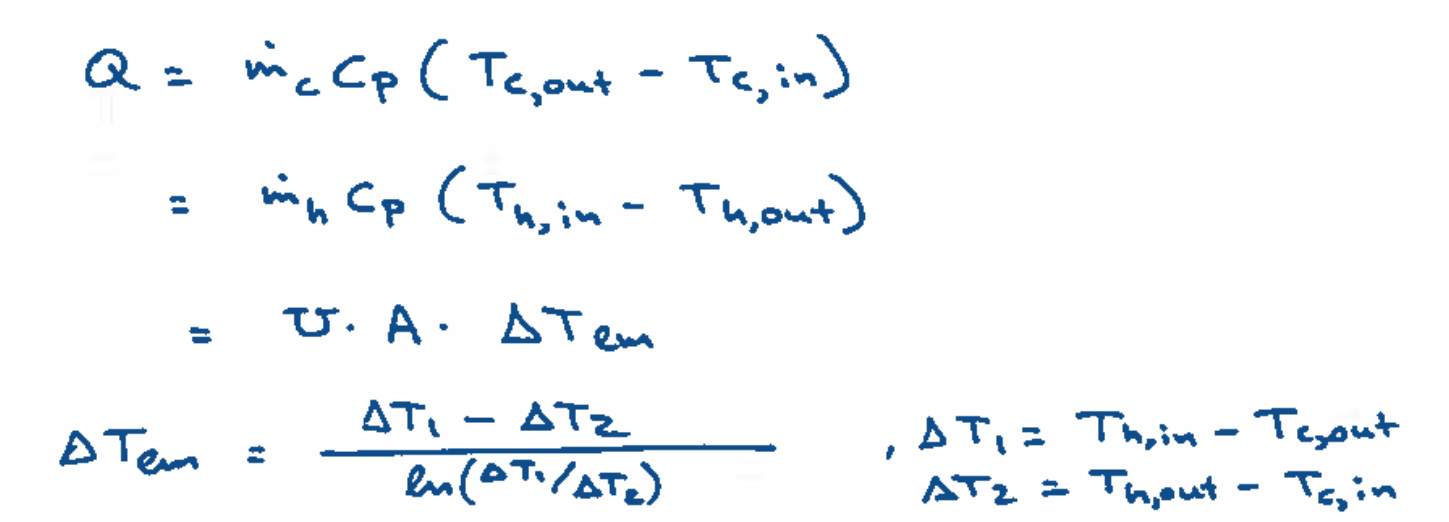 Q = ṁ_c Cp ( T_c,out - T_c,in )
= ṁ_h Cp ( T_h,in - T_h,out )
= U · A · ΔT_lm
ΔT_lm = (ΔT₁ - ΔT₂) / ln(ΔT₁/ΔT₂) , ΔT₁ = T_h,in - T_c,out
ΔT₂ = T_h,out - T_c,in